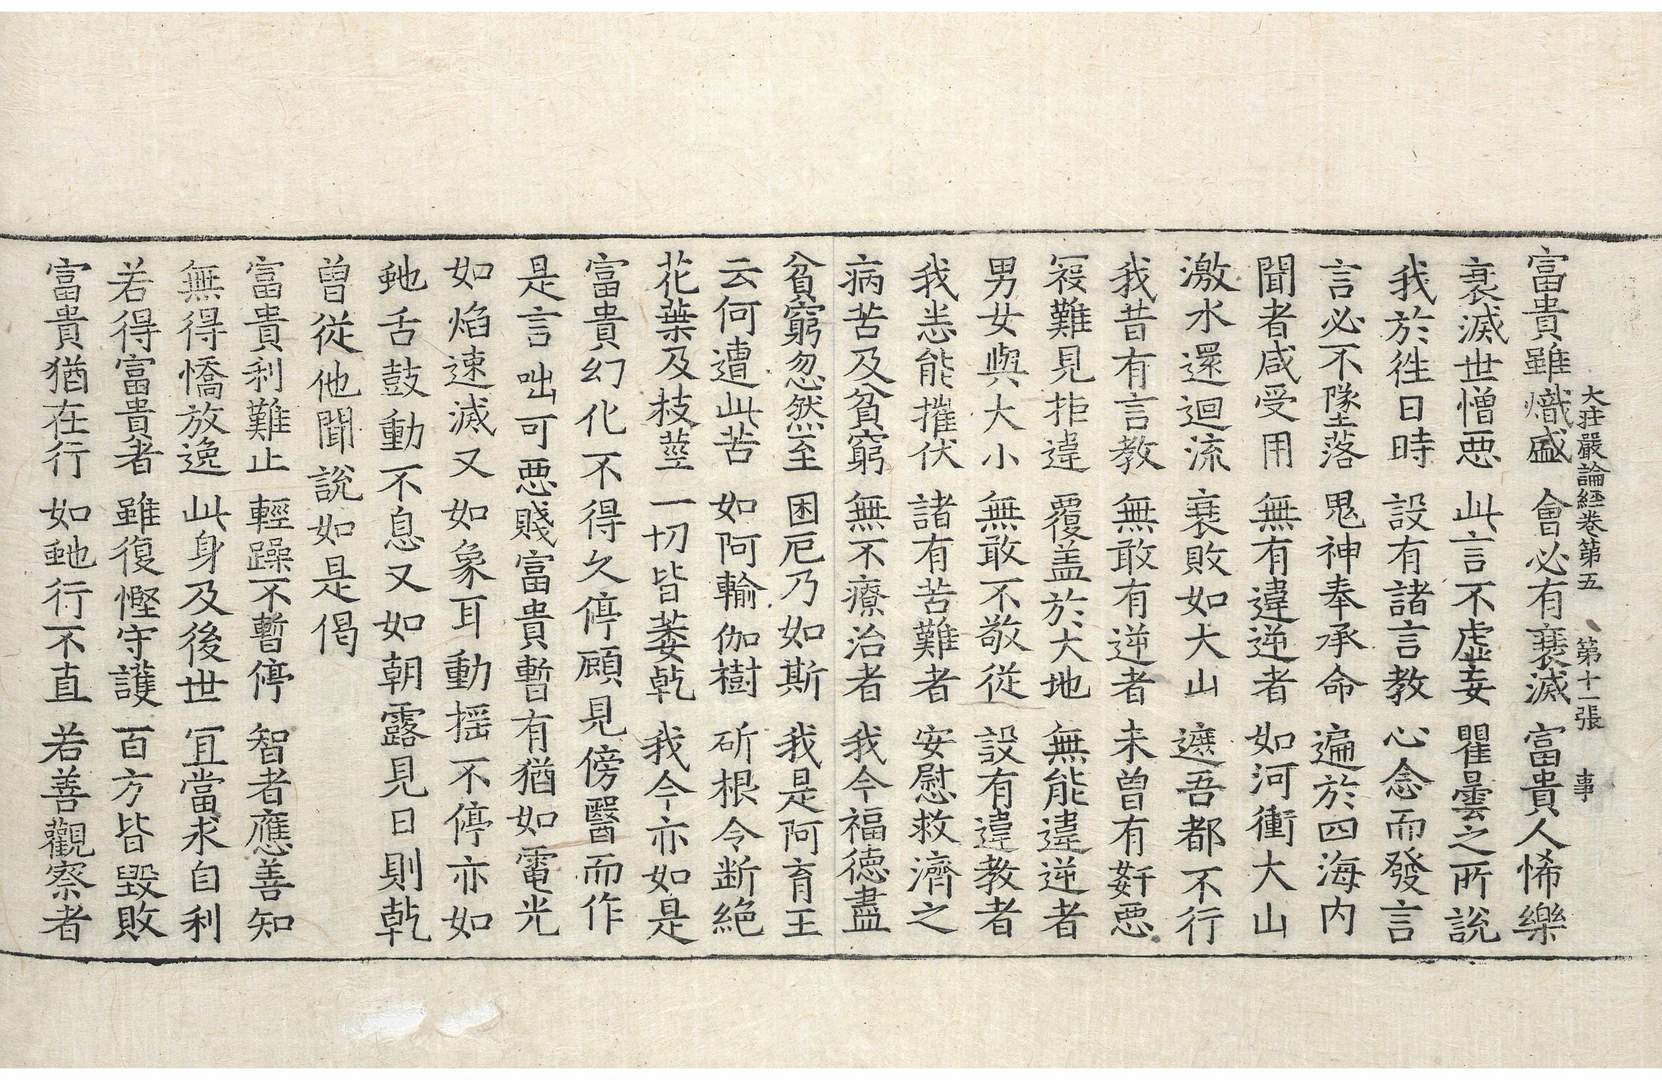 大莊嚴論經卷第五　第十一張　事
富貴雖熾盛　會必有衰滅　富貴人悕樂
衰滅世憎惡　此言不虛妄　瞿曇之所說
我於往日時　設有諸言教　心念而發言
言必不墜落　鬼神奉承命　遍於四海內
聞者咸受用　無有違逆者　如河衝大山
激水還迴流　衰敗如大山　遮吾都不行
我昔有言教　無敢有逆者　未曾有姧惡
冦難見拒違　覆盖於大地　無能違逆者
男女與大小　無敢不敬從　設有違教者
我悉能摧伏　諸有苦難者　安慰救濟之
病苦及貧窮　無不療治者　我今福德盡
貧窮忽然至　困厄乃如斯　我是阿育王
云何遭此苦　如阿輸伽樹　斫根令断絕
花葉及枝莖　一切皆萎乾　我今亦如是
富貴幻化不得久停顧見傍醫而作
是言咄可惡賤富貴暫有猶如電光
如焰速滅又如象耳動搖不停亦如
虵舌鼓動不息又如朝露見日則乾
曾從他聞說如是偈
富貴利難止　輕躁不暫停　智者應善知
無得憍放逸　此身及後世　冝當求自利
若得富貴者　雖復慳守護　百方皆毀敗
富貴猶在行　如虵行不直　若善觀察者